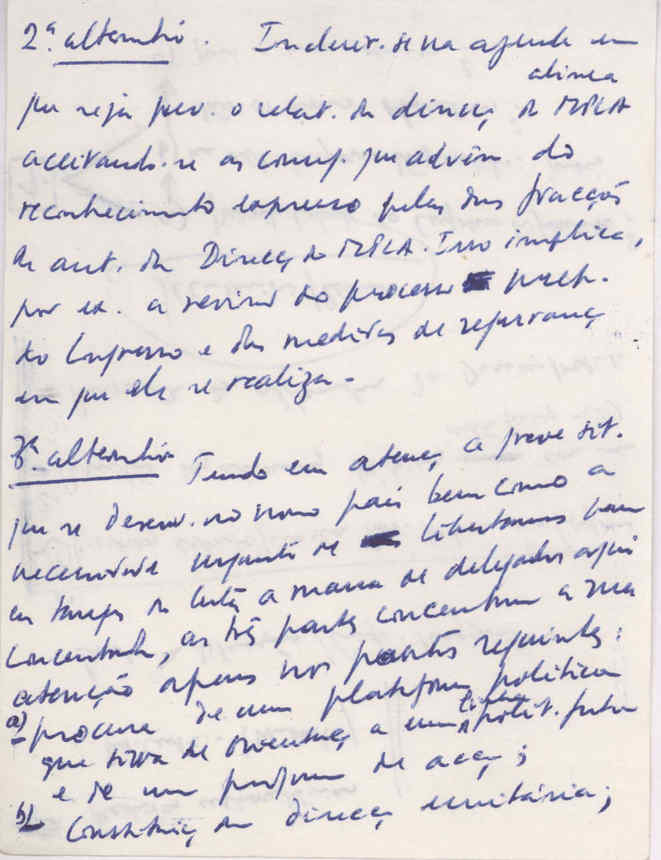 2ª alternativ. Incluir-se na agenda em
alinea
que seja prev. o relat. da direcç. do MPLA
aceitando-se as conseq. que advêm do
reconhecimento expresso pelas duas fracções
de aut. da Direcç. do MPLA. Isso implica,
por ex. a revisão do processo prep.
do Congresso e das medidas de segurança
em que ele se realiza.
3ª alternativ Tendo em atenç. a grave sit.
que se desenv. no nosso país bem como a
necessidade urgente de libertarmos para
as tarefas da luta a massa de delegados aqui
concentrada, as três partes concentram a sua
atenção apenas nos pontos seguintes:
a) procura de uma plataforma política
que sirva de orientaç. a uma linha polit. futura
e de um programa de acç.;
b) Constituiç. da direcç. unitária;